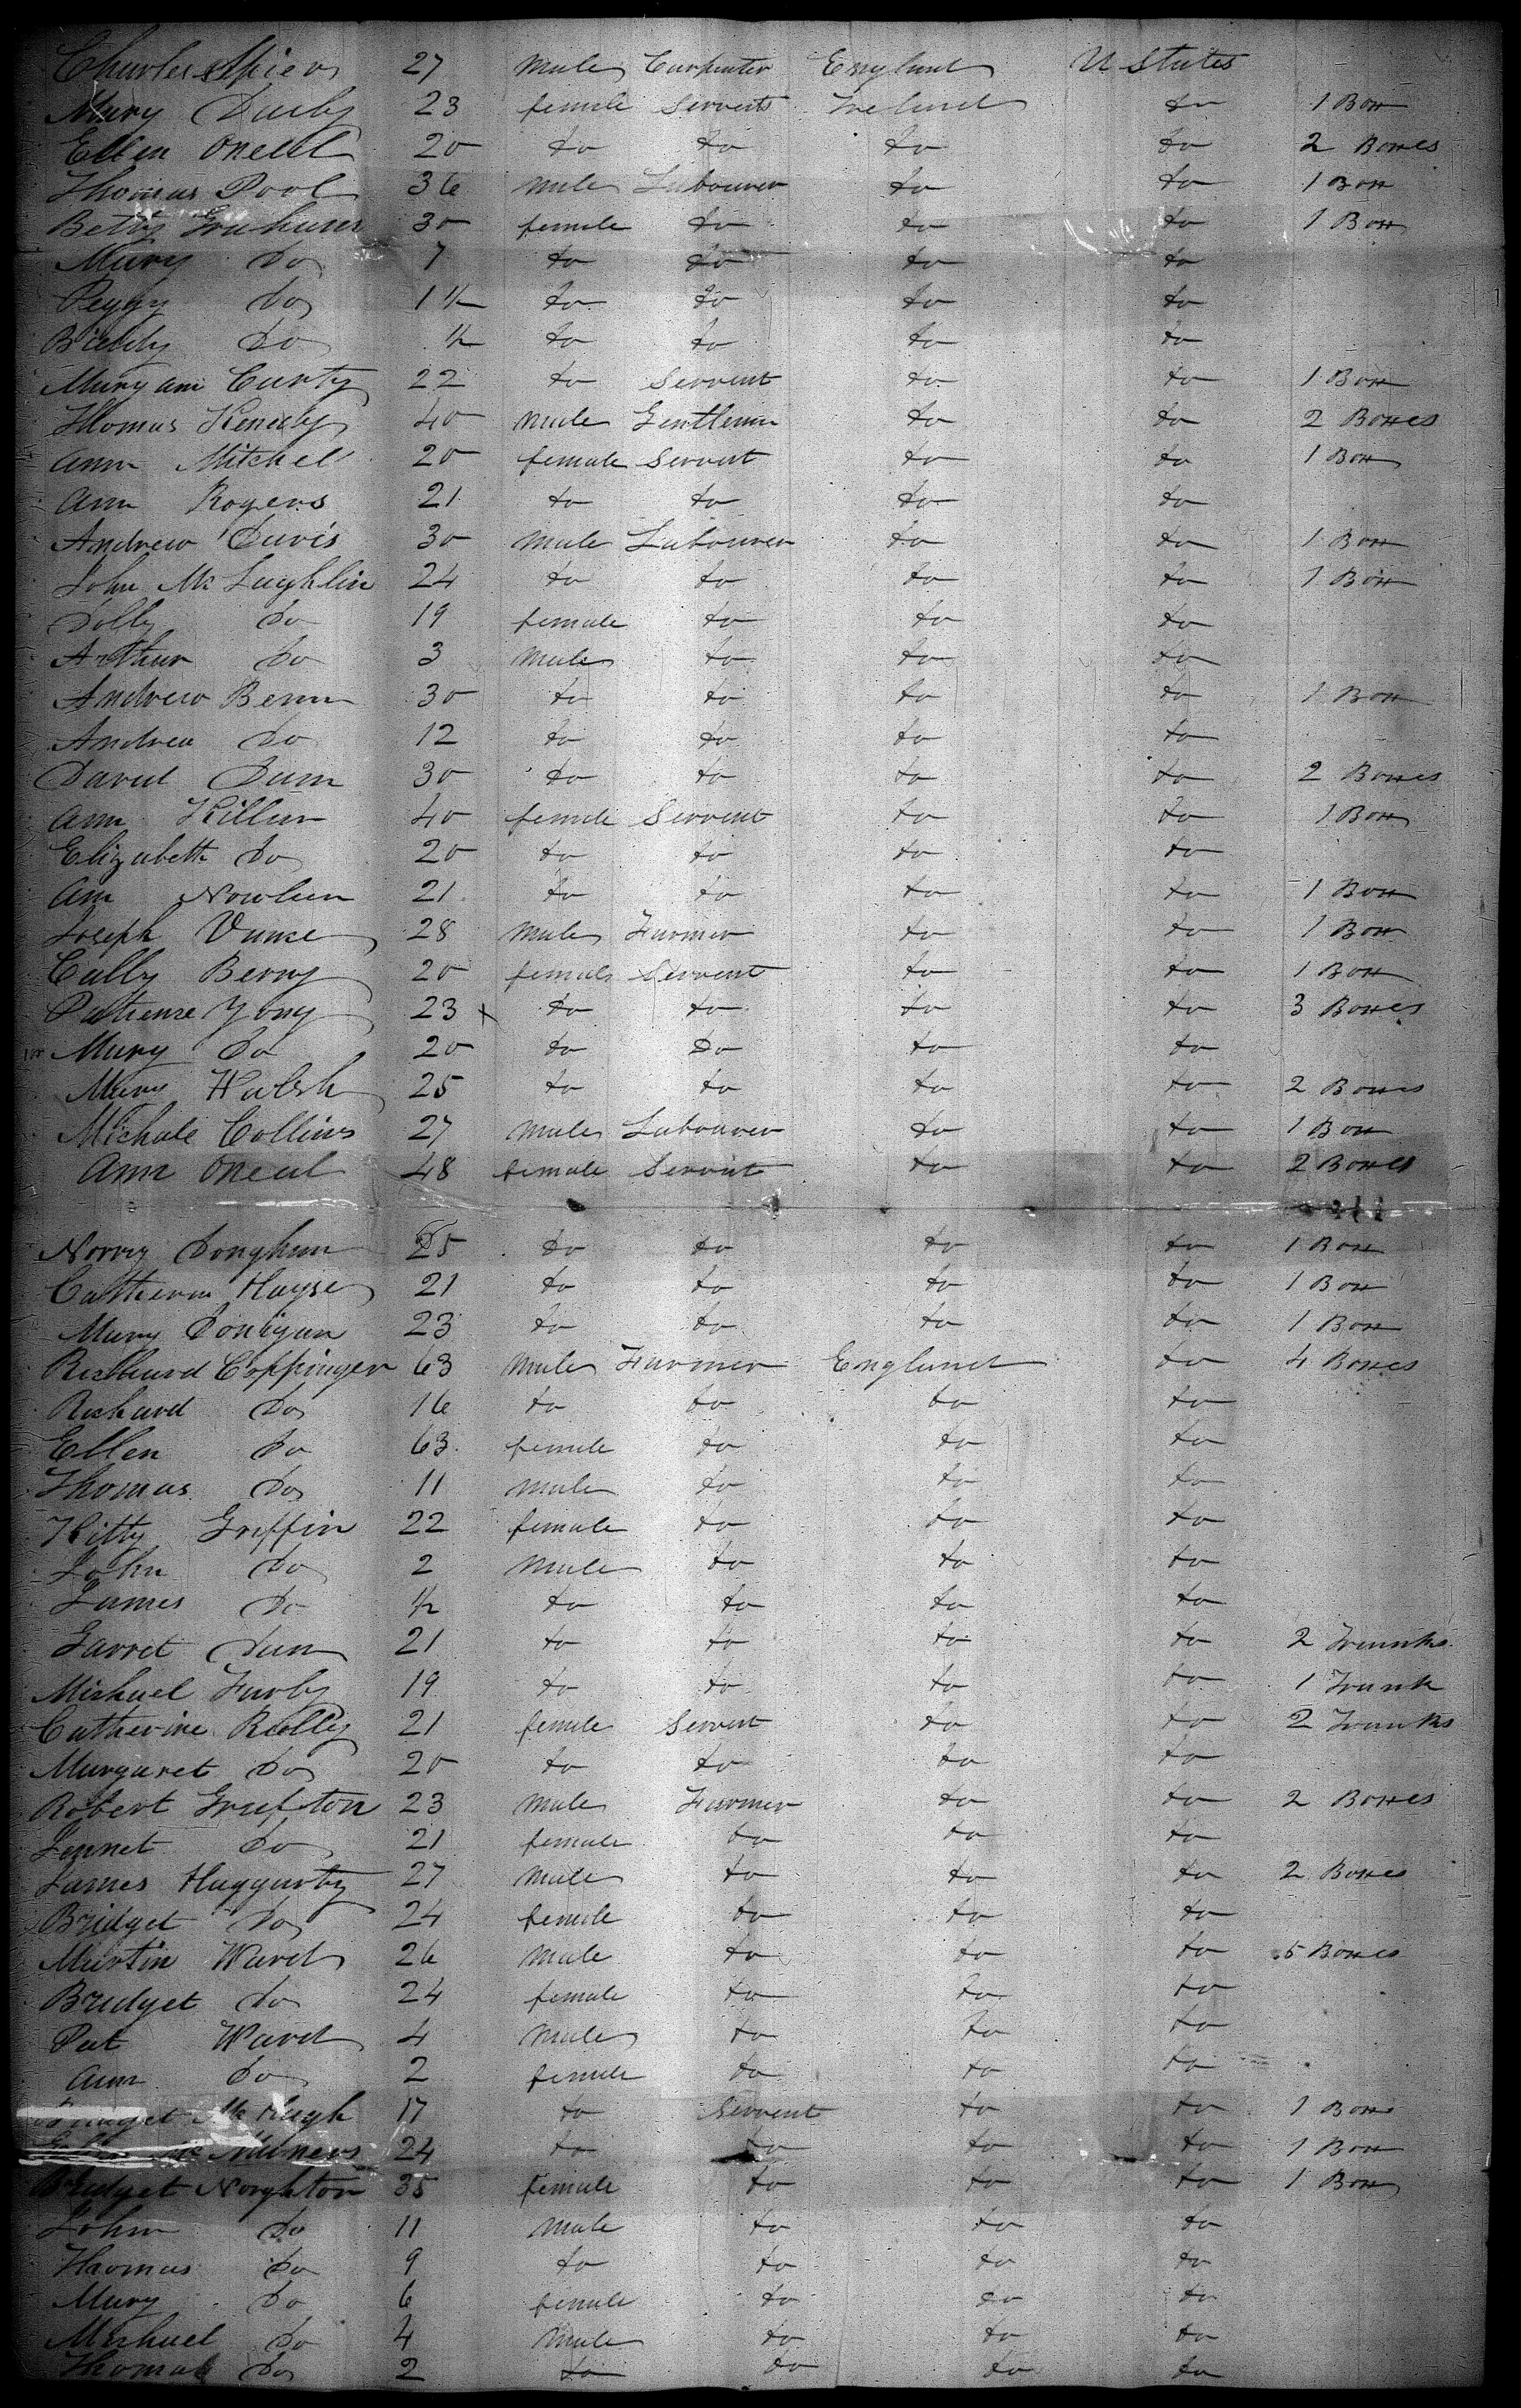 Charles Spier 27 Male Carpenter England U States
Mary Darby 23 female Servent Ireland do 1 Box
Ellen Oneal 20 do do do do 2 Boxes
Thomas Pool 36 Male Labourer do do 1 Box
Betty Graham 30 female do do do 1 Box
Mary Do 7 do do do do
Peggy Do 1 ½ do do do do
Biddy Do ½ do do do do
Mary ann Carty 22 do Servent do do 1 Box
Thomas Kenedy 40 Male Gentleman do do 2 Boxes
Ann Mitchel 20 female Servent do do 1 Box
Ann Rogers 21 do do do do
Andrew Davis 30 Male Labourer do do 1 Box
John Mc Laughlin 24 do do do do 1 Box
Dolly Do 19 female do do do
Arthur Do 3 Male do do do
Andrew Benn 30 do do do do 1 Box
Andrew Do 12 do do do do
David Dunn 30 do do do do 2 Boxes
Ann Killen 40 female Servent do do 1 Box
Elizabeth Do 20 do do do do
Ann Nowlan 21 do do do do 1 Box
Joseph Vance 28 Male Farmer do do 1 Box
Cally Berry 20 female Servent do do 1 Box
Patience Yong 23 x do do do do 3 Boxes
Mary Do 20 do do do do
Mary Walsh 25 do do do do 2 Boxes
Michale Collins 27 Male Labourer do do 1 Box
Ann Oneal 48 female Servent do do 2 Boxes
Norry Donghan 25 do do do do 1 Box
Catherin Hayse 21 do do do do 1 Box
Mary Donigan 23 do do do do 1 Box
Richard Coppinger 63 Male Farmer England do 4 Boxes
Richard Do 16 do do do do
Ellen Do 63 female do do do
Thomas Do 11 Male do do do
Kitty Griffin 22 female do do do
John Do 2 Male do do do
James Do ½ do do do do
Garret Dunn 21 do do do do 2 Trunks
Michael Farly 19 do do do do 1 Trunk
Catherine Reilly 21 female Servent do do 2 Trunks
Margaret Do 20 do do do do
Robert Grafton 23 Male Farmer do do 2 Boxes
Jennet Do 21 female do do do
James Haggarty 27 Male do do do 2 Boxes
Bridget Do 24 female do do do
Martin Ward 26 Male do do do 5 Boxes
Bridget Do 24 female do do do
Pat Ward 4 Male do do do
Ann Do 2 female do do do
Bridget Mc Hugh 17 do Servent do do 1 Box
Mc 24 do do do do 1 Box
Bridget Noughton 35 female do do do 1 Box
John Do 11 Male do do do
Thomas Do 9 do do do do
Mary Do 6 female do do do
Michael Do 4 Male do do do
Thomas Do 2 do do do do